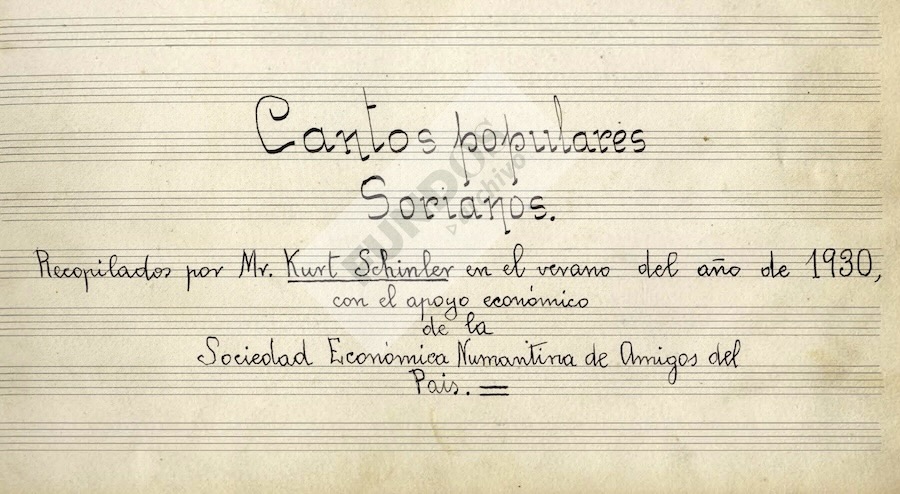 Cantos populares
Sorianos.
Recopilados por Mr. Kurt Schinler en el verano del año de 1930,
con el apoyo económico
de la
Sociedad Económica Numantina de Amigos del
Pais. =
FONDOS
DE archivo